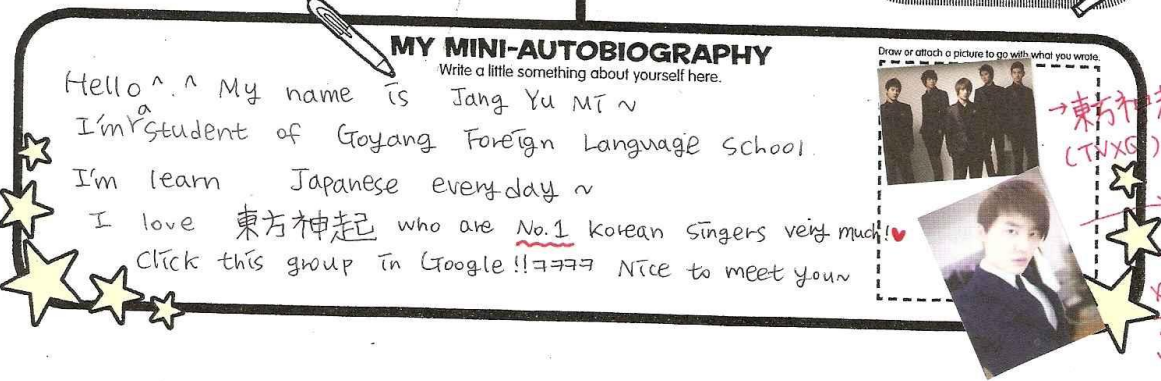 MY MINI-AUTOBIOGRAPHY
Write a little something about yourself here.
Draw or attach a picture to go with what you wrote.
Hello ^.^ My name is Jang Yu Mi ~
I'm a student of Goyang Foreign Language School.
I'm learn Japanese everyday ~
I love 東方神起 who are No.1 Korean singers very much!♥
Click this group in Google!!ㅋㅋㅋㅋ Nice to meet you~
→東方神起
(TVXQ)